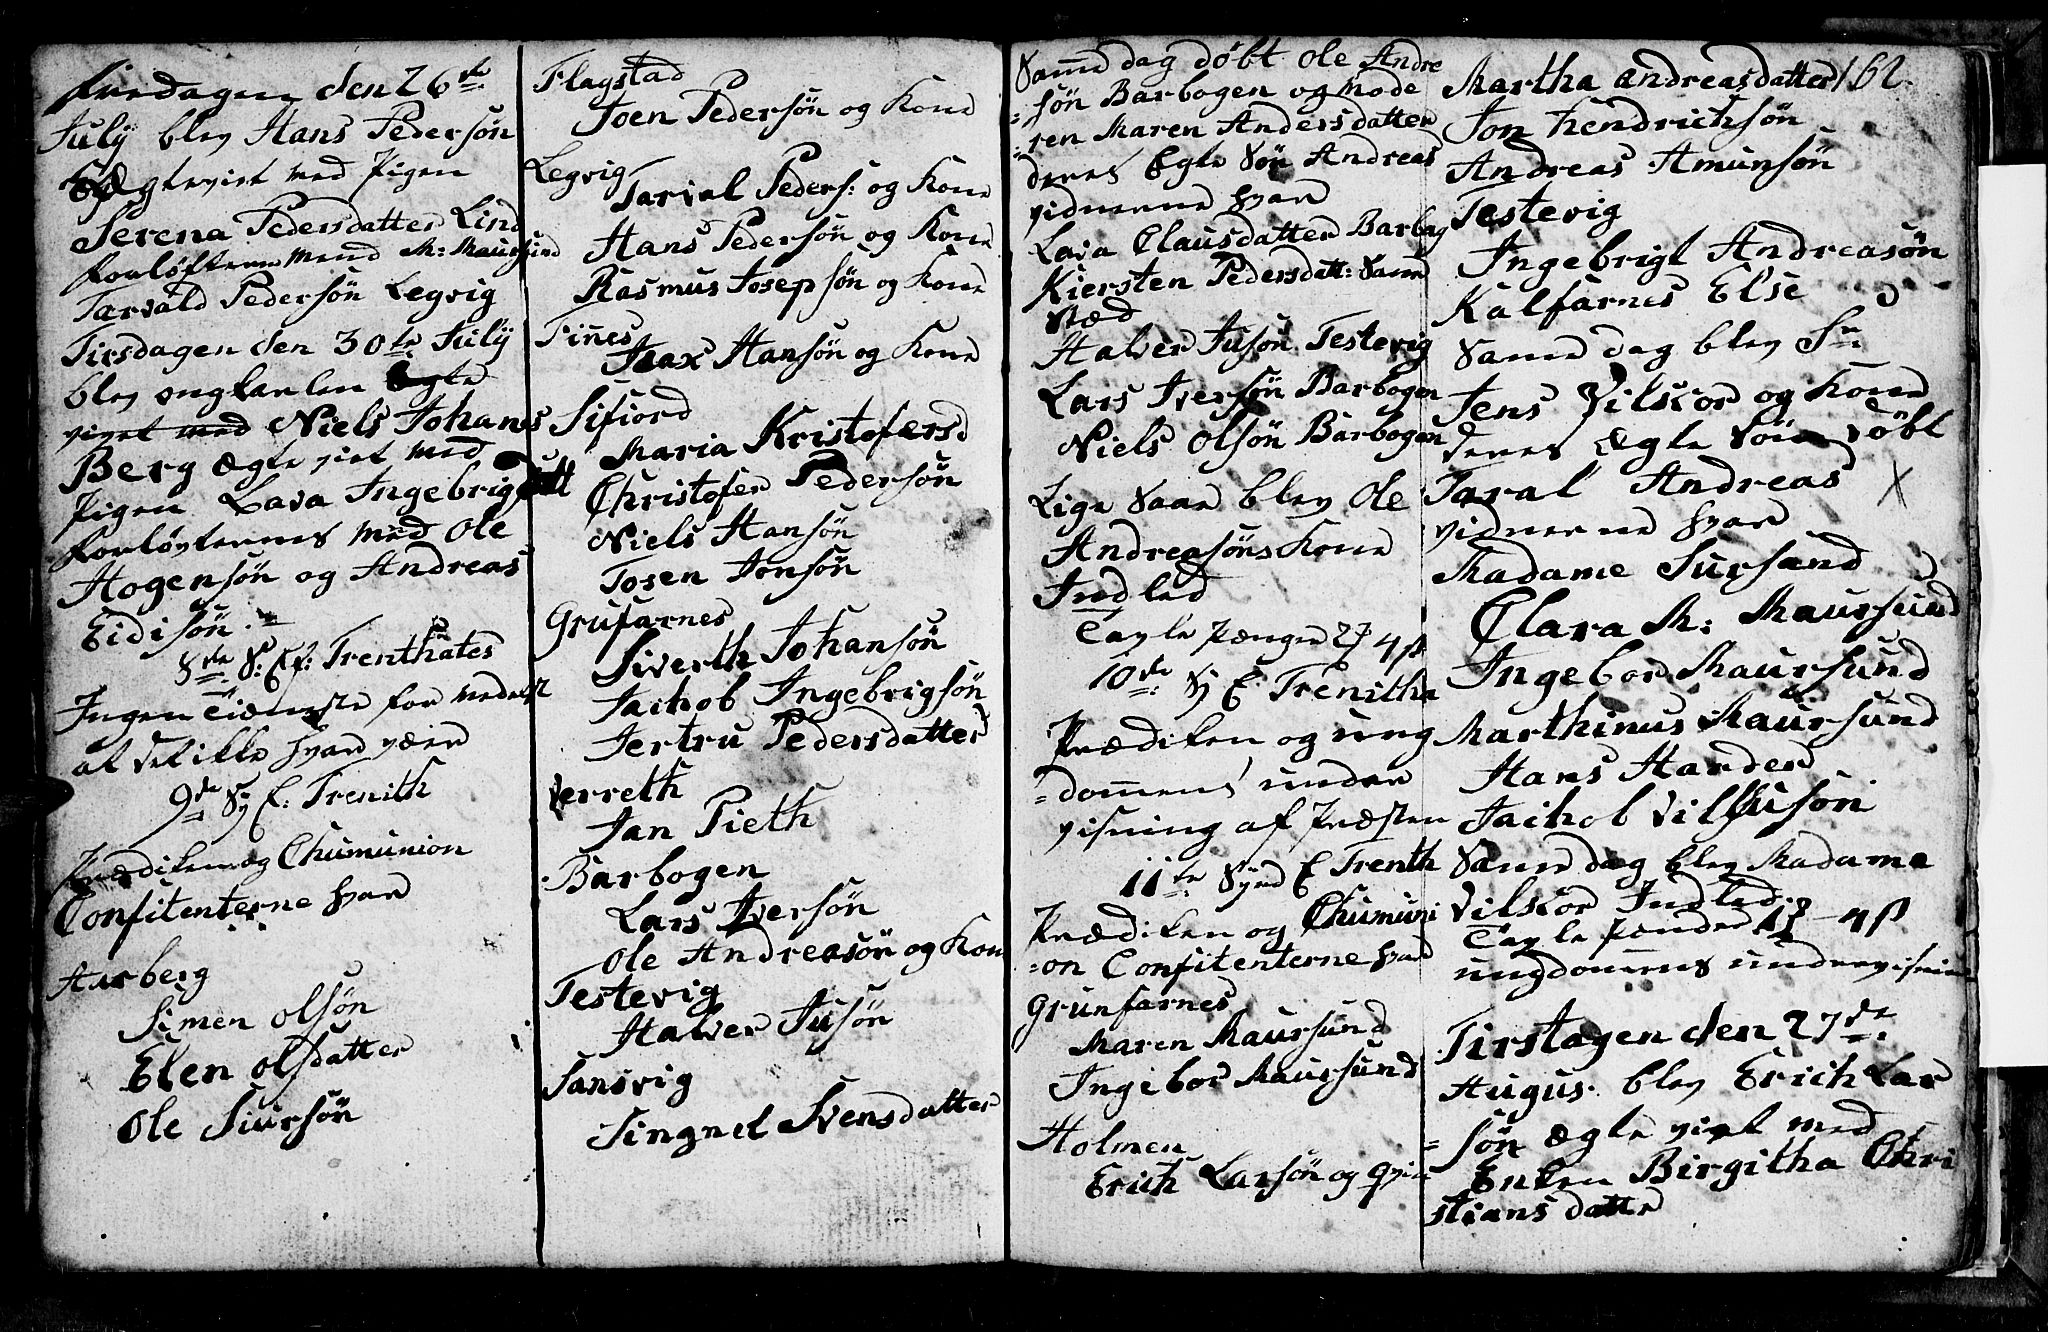 den 26de
July blev Hans Pedersøn
Ægteviet med Pigen
Serena Pedersdatter Lind
forløfterne M: Maursund
Tarvald Pedersøn Legvig
Tirsdagen den 30te July
blev Ægte
viet med Niels Johans
Berg Ægte viet med
Pigen Lava Ingebrigdatt
forløvterne med Ole
Hogensøn og Andreas
Eidisøn
8de S: Ef: Trenthates
Ingen Tieneste for
at det ikke hvar veir
9de Sy E: Trenith
Prædiken og Chumunion
Confitenterne hvar
Aarberg
Simen Olsøn
Elen Olsdatter
Ole Siursøn
Flagstad
Joen Pedersøn og Kone
Legvig
Tarial Peders: og Kone
Hans Pedersøn og Kone
Rasmus Josepsøn og Kone
Finnes
Isax Hansøn og Kone
Sifiord
Maria Kristofersd
Christofer Pedersøn
Niels Hansøn
Tosen Jonsøn
Grufarnes
Siverth Johansøn
Jachob Ingebrigsøn
Jertru Pedersdatter
Verreth
Jan Pieth
Barbogen
Lars Iversøn
Ole Andreasøn og Kone
Testevig
Halver Jusøn
Sansvig
Singnel Svensdatter
Samme dag døbt Ole Andre
=søn Barbogen og Mode
=ren Maren Andersdatter
deres Ægte Søn Andreas
vidnerne hvar
Lava Clausdatter Barbog
Kiersten Pedersdatt: Samme
Stæd
Halver Jusøn Testevig
Lars Iversøn Barbogen
Niels Olsøn Barbogen
Lige Saa blev Ole
Andreasøns Kone
Indled
Tavle Penger 27 4 ß
10de Sy E Trenitha
Prædiken og ung
=dommens under
visning af Præsten
11te Synd E Trenth
Prædiken og Chumuni
=on Confitenterne hvar
Grunfarnes
Maren Maursund
Ingebor Maursund
Holmen
Erich Larsøn og Qvin
162
Martha Andreasdatter
Jon Hendrichsøn
Andreas Amunsøn
Testevig
Ingebrigt Andreasøn
Kalfarnes Else
Samme dag blev Sr
Jens Vilsiord og Kone
deres Ægte Søn døbt
Taral Andreas X
vidnerne hvar
Madame Sursand
Clara M: Maursund
Ingebor Maursund
Marthinus Maursund
Hans Harder
Jachob Vilhusøn
Samme dag blev Madame
Vilsiord Indled
Tavle Penger 4 ß
ungdomens undervisning
Tirstagen den 27de
Augus. blev Erich Lar
=søn ægte viet med
Enken Birgitha Chri
stians datter